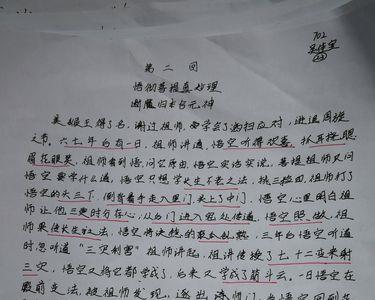 702
第二回
悟彻菩提真妙理
断魔归本合元神
美猴王得了名,谢过祖师,要学会了洒扫应对,进退周旋
之节。六七年后有一日,祖师讲道,悟空听得欢喜,抓耳挠腮
眉花眼笑,祖师看到悟问空原由,悟空实话实说,菩提祖师又问
悟空要学什么道,悟空只想学长生不老之法,挨三拒四,祖师打了
悟空的头三下,倒背着手走入里门,关上了中门,悟空心里明白祖
师让他三更时分存心,从后门进入秘处传道,悟空照做,祖
师果传长生妙法,悟空将决想的
时忽听道“三灾利害”祖师讲起,祖讲传授了七十二变来躲
三灾,悟空又将它都学成了,后来又学成了筋斗云。一日悟空在
众前变法,被祖师发现,逐出师门,